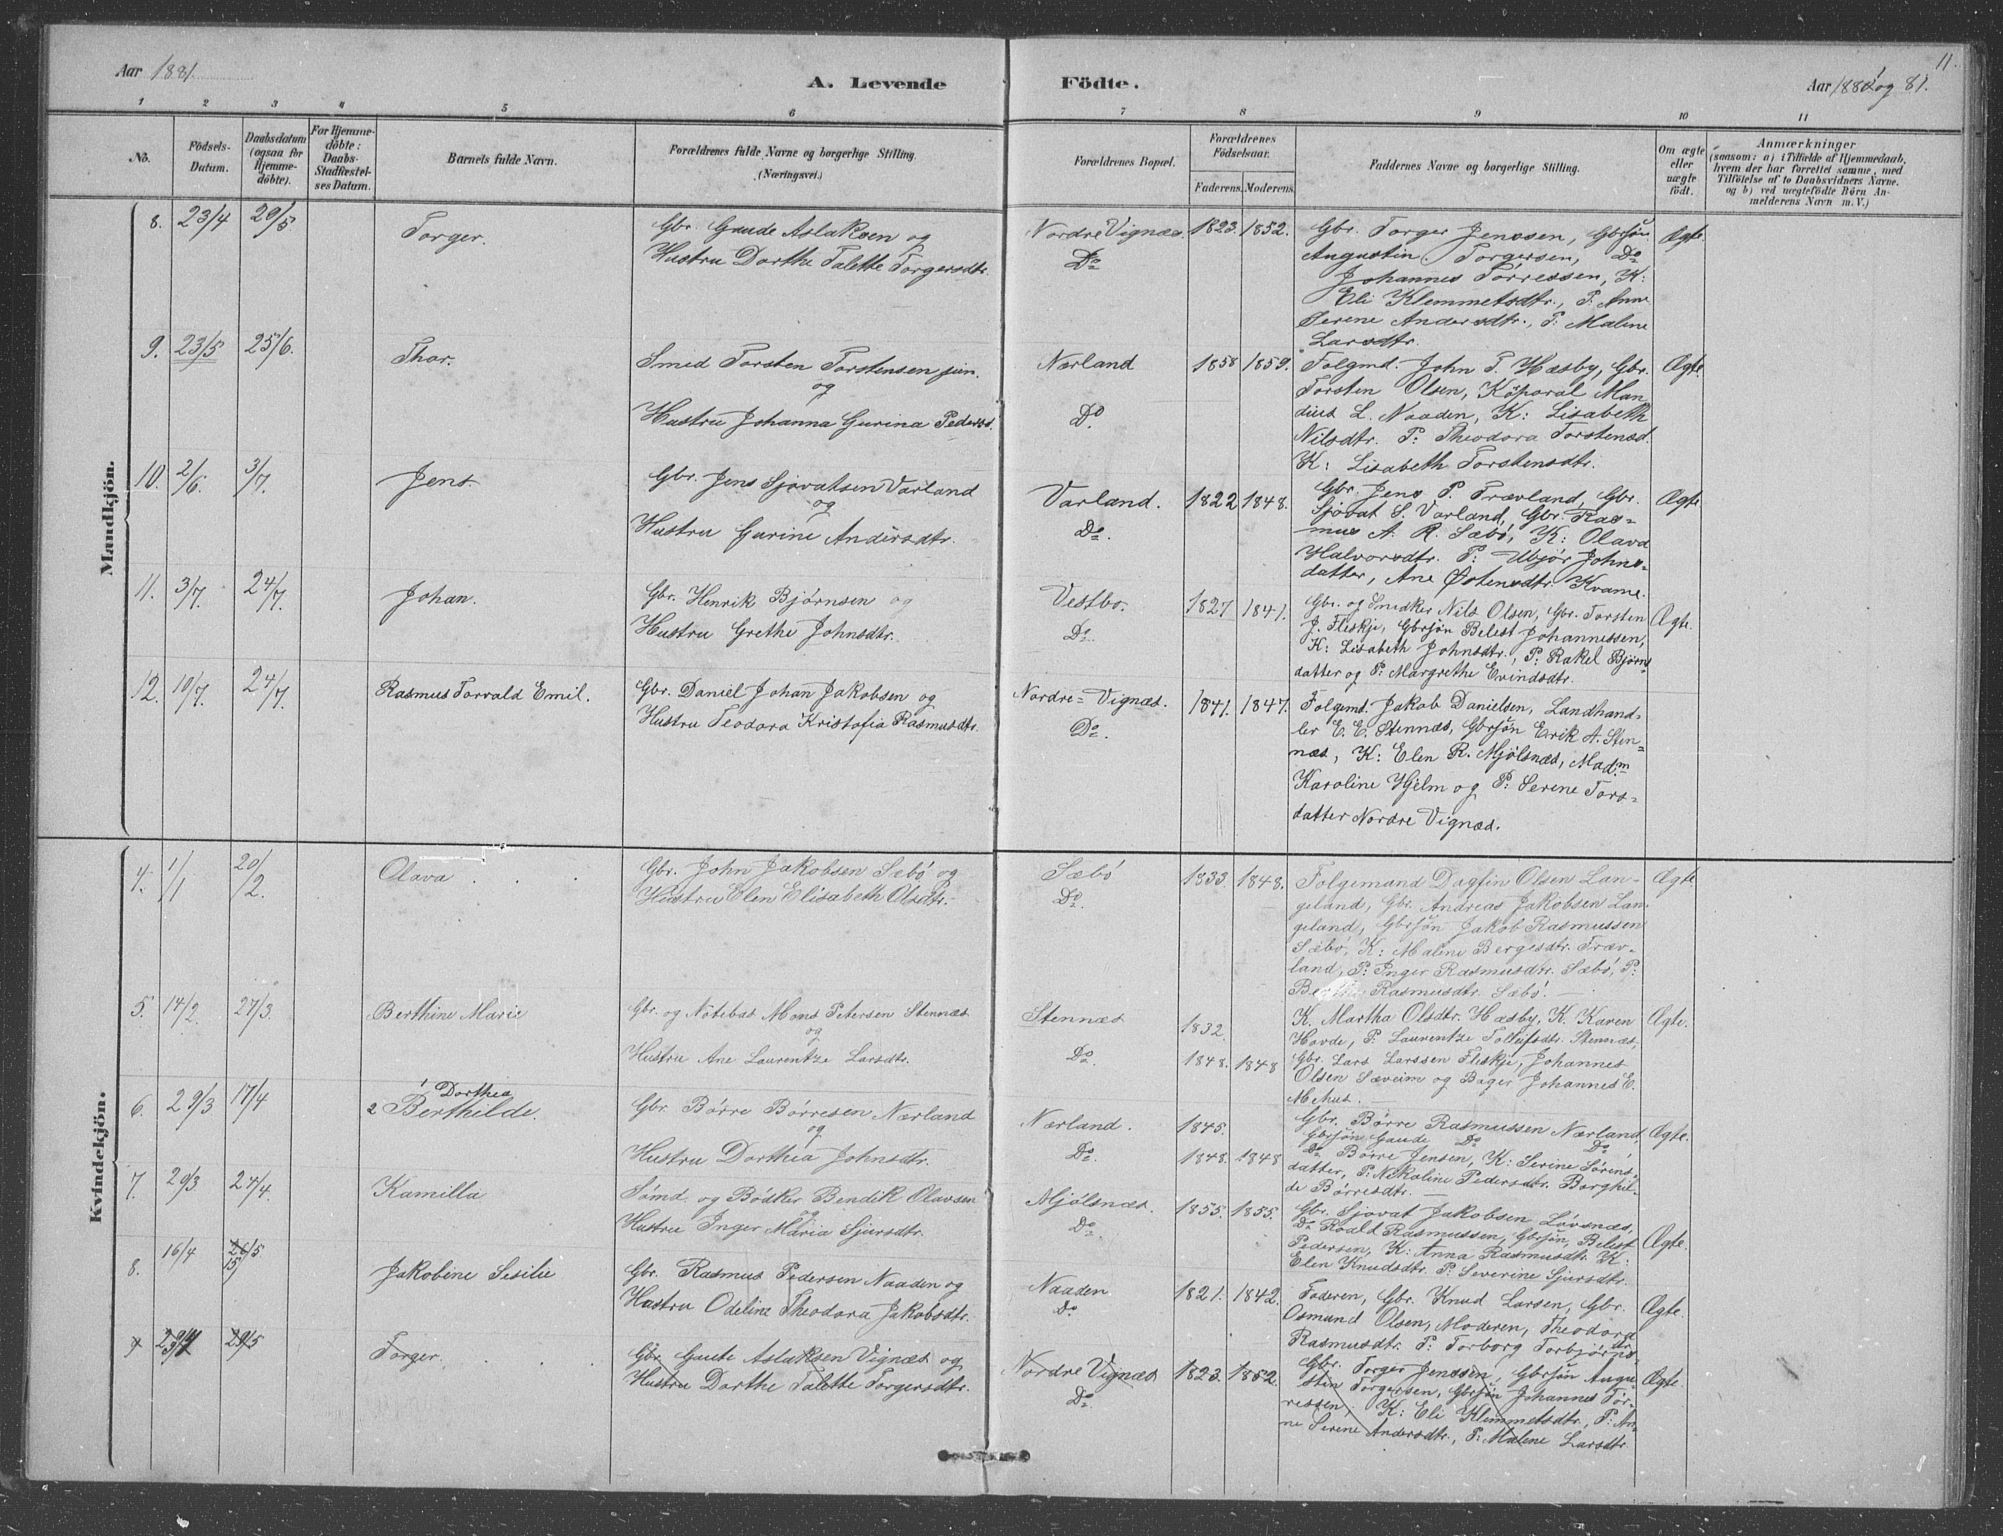 Aar 1881.
A. Levende Födte.
Aar 1881 og 81.
11.
1 2 3 4 5 6 7 8 9 10 11
No.
Födsels-Datum.
Daabsdatum (ogsaa for Hjemme-döbte).
For Hjemme-döbte: Daabs-Stadfæstel-ses Datum.
Barnets fulde Navn.
Forældrenes fulde Navne og borgerlige Stilling. (Næringsvei.)
Forældrenes Bopæl.
Forældrenes Födselsaar.
Faderens. Moderens.
Faddernes Navne og borgerlige Stilling.
Om ægte eller uægte födt.
Anmærkninger
(saasom: a) i Tilfælde af Hjemmedaab, hvem der har forrettet samme, med Tilföielse af to Daabsvidners Navne, og b) ved uægtefödte Börn An-melderens Navn m. V.)
Mandkjön.
8. 23/4 29/5 Torger.
Gbr. Gaude Aslaksen og
Hustru Dorthe Talette Torgersdtr.
Nordre Vignæs. Do
1823. 1852.
Gbr. Torger Jenssen, Gbrsøn
Augustin Torgersen, Do
Johannes Tørressen, K:
Eli Klemmetsdtr., P. Anne
Serene Andersdtr., P: Malene
Larsdtr.
Ægte.
9. 23/5 25/6. Thor.
Smed Torsten Torstensen jun.
og
Hustru Johanna Gurina Peders.
Nærland Do.
1858 1859.
Folgmd. John T. Hæsby, Gbr.
Torsten Olsen, Köporal Man-
dius L. Naaden, K: Lisabeth
Nilsdtr. P: Theodora Torstensd.
K: Lisabeth Torstensdtr.
Ægte.
10. 2/6. 3/7. Jens.
Gbr. Jens Sjovatsen Varland
og
Hustru Gurine Andersdtr.
Varland. Do.
1822 1848.
Gbr. Jens P. Trævland, Gbr.
Sjovat S. Varland, Gbr. Ras-
mus A. R. Sæbö, K: Olava
Halvorsdtr. P: Ubjør Johns-
datter, Ane Østensdtr. Kvame.
Ægte
11. 3/7. 24/7. Johan.
Gbr. Henrik Bjørnsen og
Hustru Grethe Johnsdtr.
Vestbø. Do.
1827 1841.
Gbr. og Smedker Nils Olsen, Gbr. Torsten
J. Fleskje, Gbrsøn Belest Johannessen,
K: Lisabeth Johnsdtr., P: Rakel Bjørns
datter og P: Margrethe Evindsdtr.
Ægte.
12. 10/7. 24/7. Rasmus Torvald Emil.
Gbr. Daniel Johan Jakobsen og
Hustru Teodora Kristofia Rasmusdtr.
Nordre-Vignæs. Do.
1841. 1847.
Folgmd. Jakob Danielsen, Landhand-
ler E. E. Stennæs, Gbrsøn Erik A. Sten-
næs, K: Elen R. Mjölsnæs, Madm
Karoline Hjelm og P: Serene Tors-
datter Nordre Vignæs.
Kvindekjön.
4. 1/1 20/2. Olava
Gbr. John Jakobsen Sæbö og
Hustru Elen Elisabeth Olsdtr.
Sæbö Do.
1833 1848.
Folgemand Dagfin Olsen Lan-
geland, Gbr. Andreas Jakobsen Lan-
geland, Gbrsøn Jakob Rasmussen
Sæbö, K: Malene Bergesdtr. Træv-
land, P: Inger Rasmusdtr. Sæbö, P:
Rasmusdtr. Sæbö.
Ægte
5. 14/2. 27/3. Berthine Marie
Gbr. og Notebas Mons Petersen Stennæs
og
Hustru Ane Laurentze Larsdtr.
Stennæs Do.
1832. 1848. 1848
K. Martha Olsdtr. Hæsby, K. Karen
Hovde, P. Laurentze Tollefsdtr. Stennæs,
Gbr. Lars Larssen Fleskje, Johannes
Olsen Sæveim og Bager Johannes E.
Mehus.
Ægte.
6. 29/3 17/4 1 Dorthea
2 Berthilde
Gbr. Børre Børresen Nærland
og
Hustru Dorthea Johnsdtr.
Nærland. Do.
1845. 1848. 1848
Gbr. Børre Rasmussen Nærland,
Gbrsøn Gaude Do Do,
Do Børre Jensen, K: Serine Sørens-
datter, P: Nikoline Pedersdtr. Borghil-
de Børresdtr.
Ægte.
7. 29/3 27/4. Kamilla
Sömd. og Bödker Bendik Olavsen
og
Hustru Inger Maria Sjursdtr.
Mjölsnæs. Do.
1855. 1855.
Gbr. Sjovat Jakobsen Løvsnæs,
Do Roald Rasmussen, Gbrsøn Belest
Pedersen, K: Anna Rasmusdtr. K:
Elen Knudsdtr. P: Severine Sjursdtr.
Ægte.
8. 16/4 26/5 15 Jakobine Sesilie
Gbr. Rasmus Pedersen Naaden og
Hustru Odeline Theodora Jakobsdtr.
Naaden Do
1821. 1842.
Faderen, Gbr. Knud Larsen, Gbr.
Osmund Olsen, Moderen, Theodora
Rasmusdtr. P: Torborg Torbjørnsdtr.
Ægte.
9 23/4 29/5 Torger.
Gbr. Gaute Aslaksen Vignæs og
Hustru Dorthe Talette Torgersdtr.
Nordre Vignæs Do.
1823. 1852.
Gbr. Torger Jenssen, Gbrsøn Augu-
stin Torgersen, Gbrsøn Johannes Tør-
ressen, K: Eli Klemmetsdtr., P: An-
ne Serene Andersdtr., P: Malene Larsdtr.
Ægte.